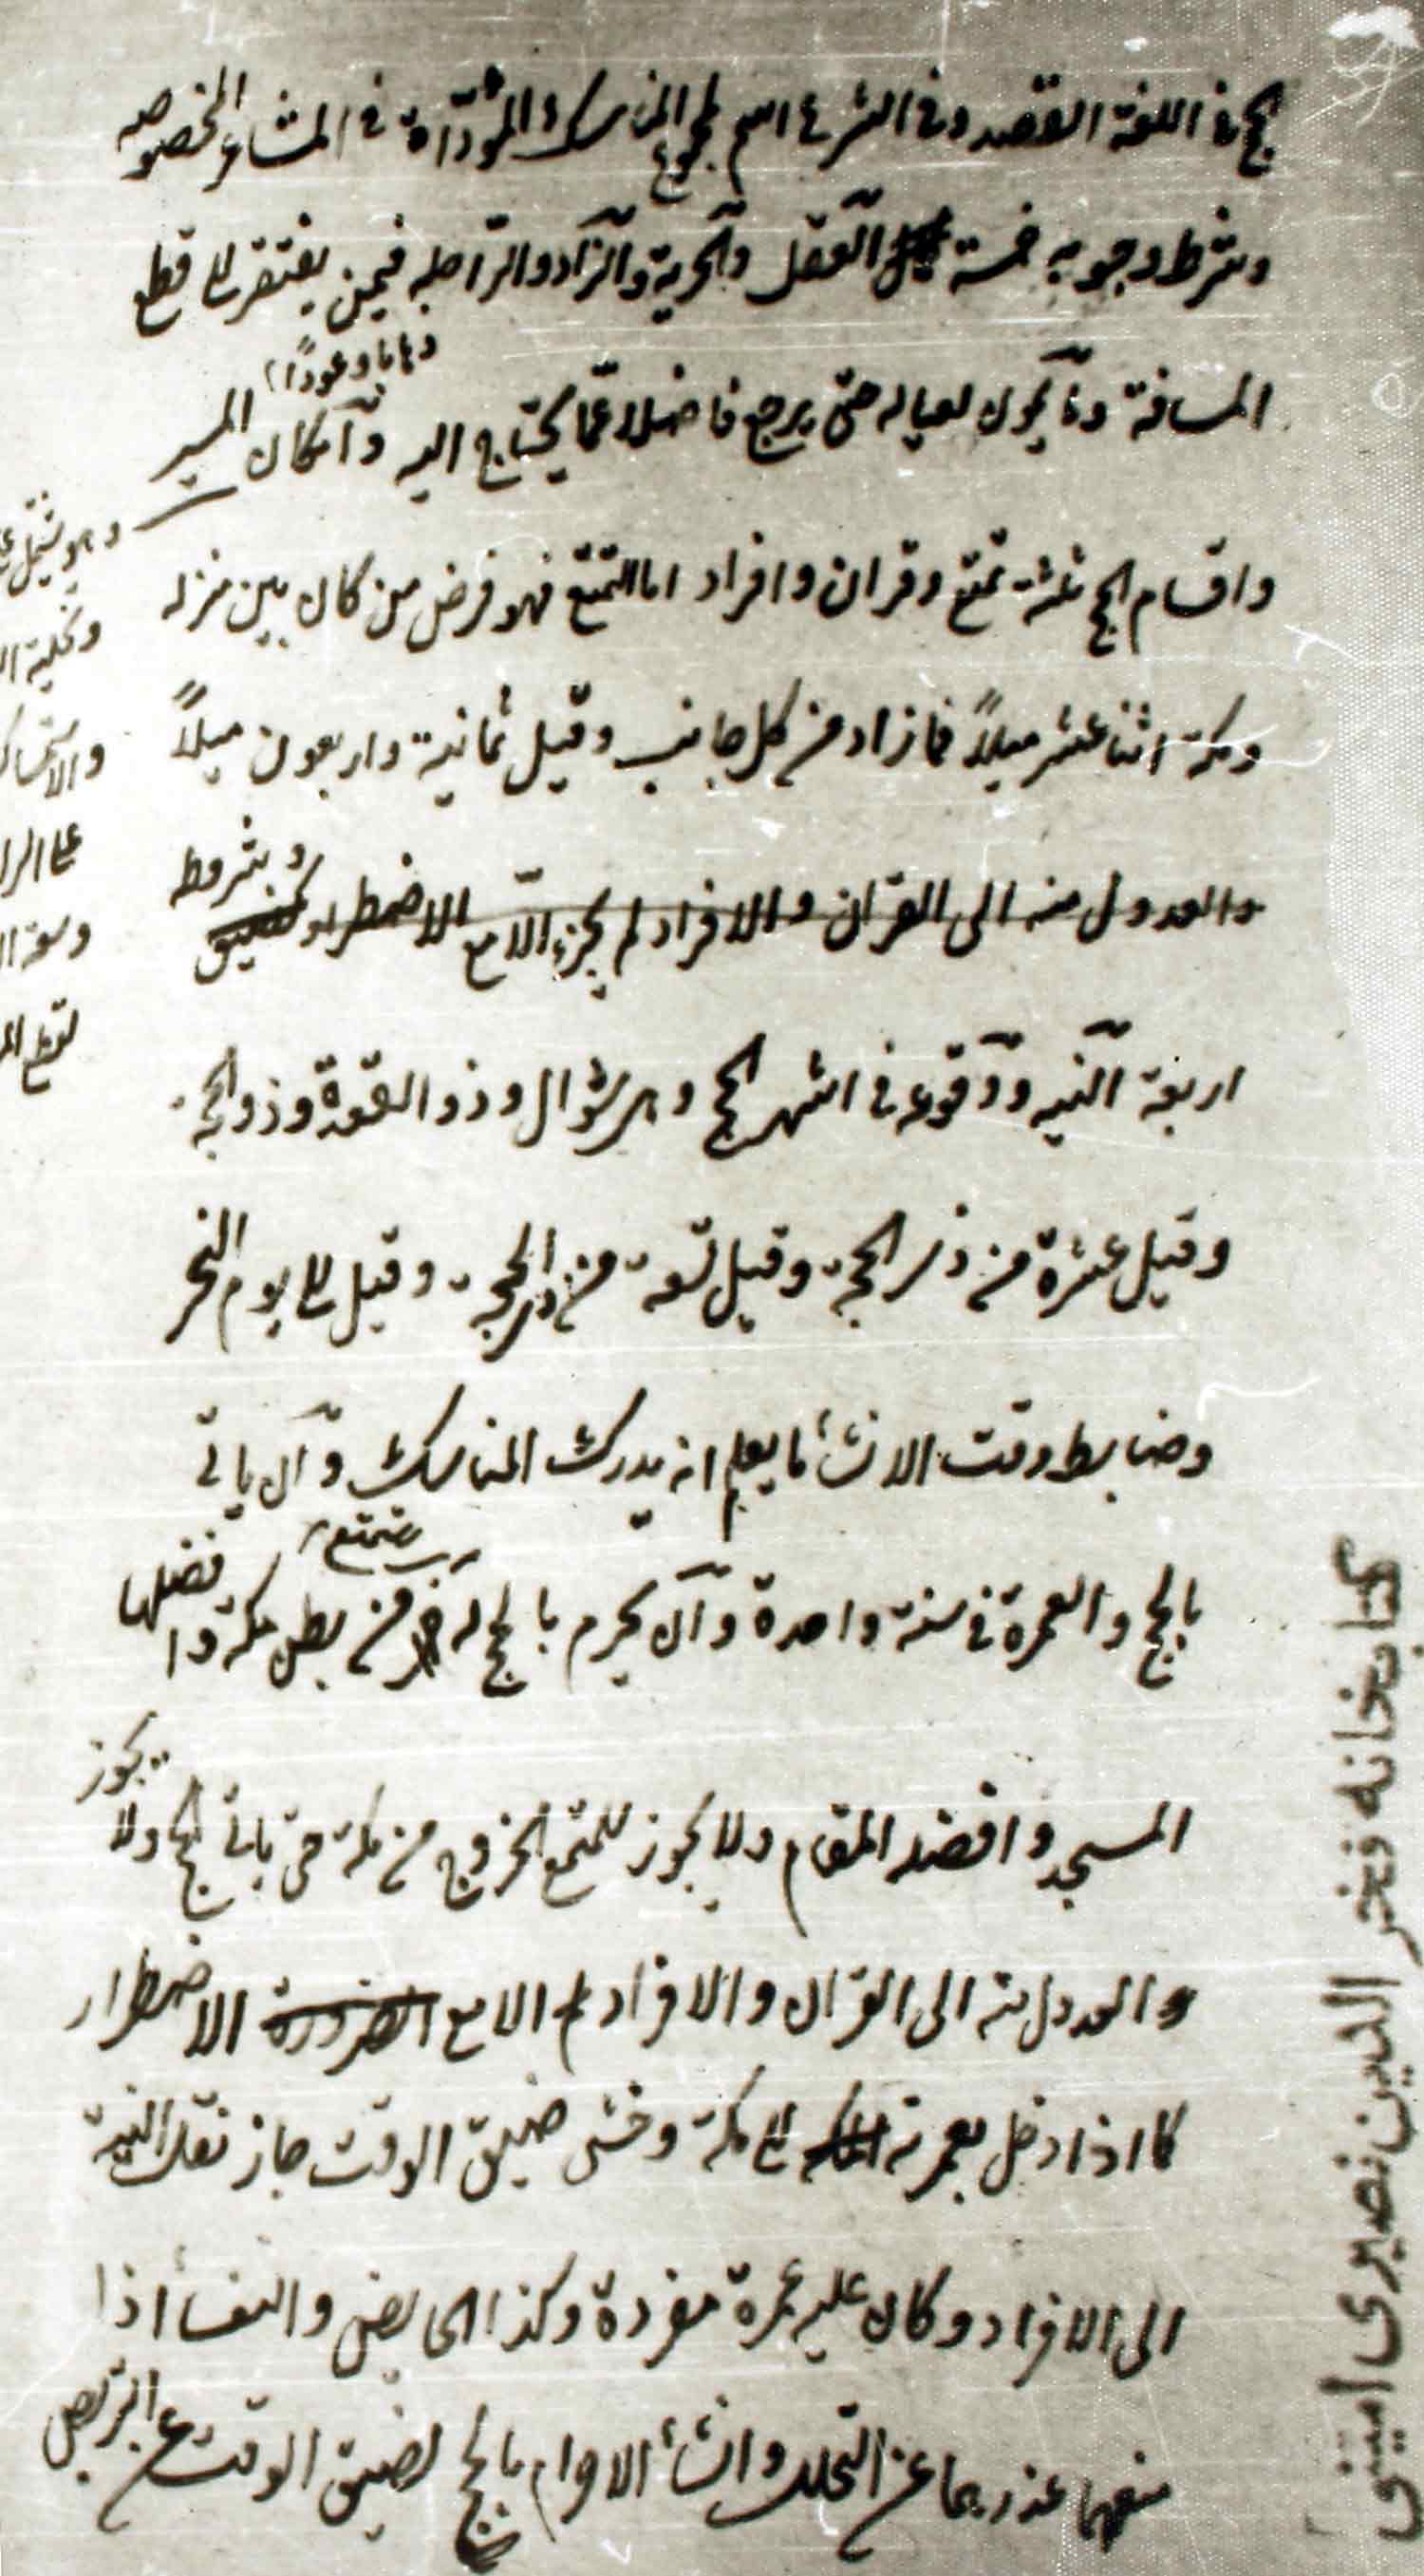 الحج في اللغة القصد وفي الشرع اسم لمجموع المناسك المؤداة في المشاعر المخصوصه
وشرط وجوبه خمسة العقل والحرية والزاد والراحله فيمن يفتقر الى قطع
ذهابا وعودًا
المسافة وما يمون لعياله حتى يرجع فاضلا عمّا يحتاج اليه وامكان المسير
واقسام الحج ثلثة تمتع وقران وافراد اما التمتع فهو فرض من كان بين منزله
ومكة اثنا عشر ميلاً فما زاد من كل جانب وقيل ثمانية واربعون ميلاً
والعدول منه الى القران والافراد لم يجز الّا مع الاضطرار كضيق وشروط
اربعة النيه ووقوعه في اشهر الحج وهي شوال وذو القعدة وذو الحجه
وقيل عشرة من ذي الحجة وقيل تسعة من ذي الحجة وقيل الى يوم النحر
وضابط وقت الانشاء ما يعلم انه يدرك المناسك وان ياتي
بالحج والعمرة في سنة واحدة وان يحرم بالحج له من بطن مكة وافضلها
تمتع
المسجد وافضله المقام ولا يجوز للمتمتع الخروج من مكة حتى ياتي بالحج ولا يجوز
والعدول منه الى القران والافراد الا مع الضرورة الاضطرار
كما اذا دخل بعمرته الى مكة وخشي ضيق الوقت جاز نقل النية
الى الافراد وكان عليه عمرة مفردة وكذا الحايض والنفساء اذا
منعهما عذرهما عن التحلل وانشاء الاحرام بالحج لضيق الوقت عن التربص
وهو يشتمل
وتخلية
على
كتابخانه فخر الدين نصيرى امينى